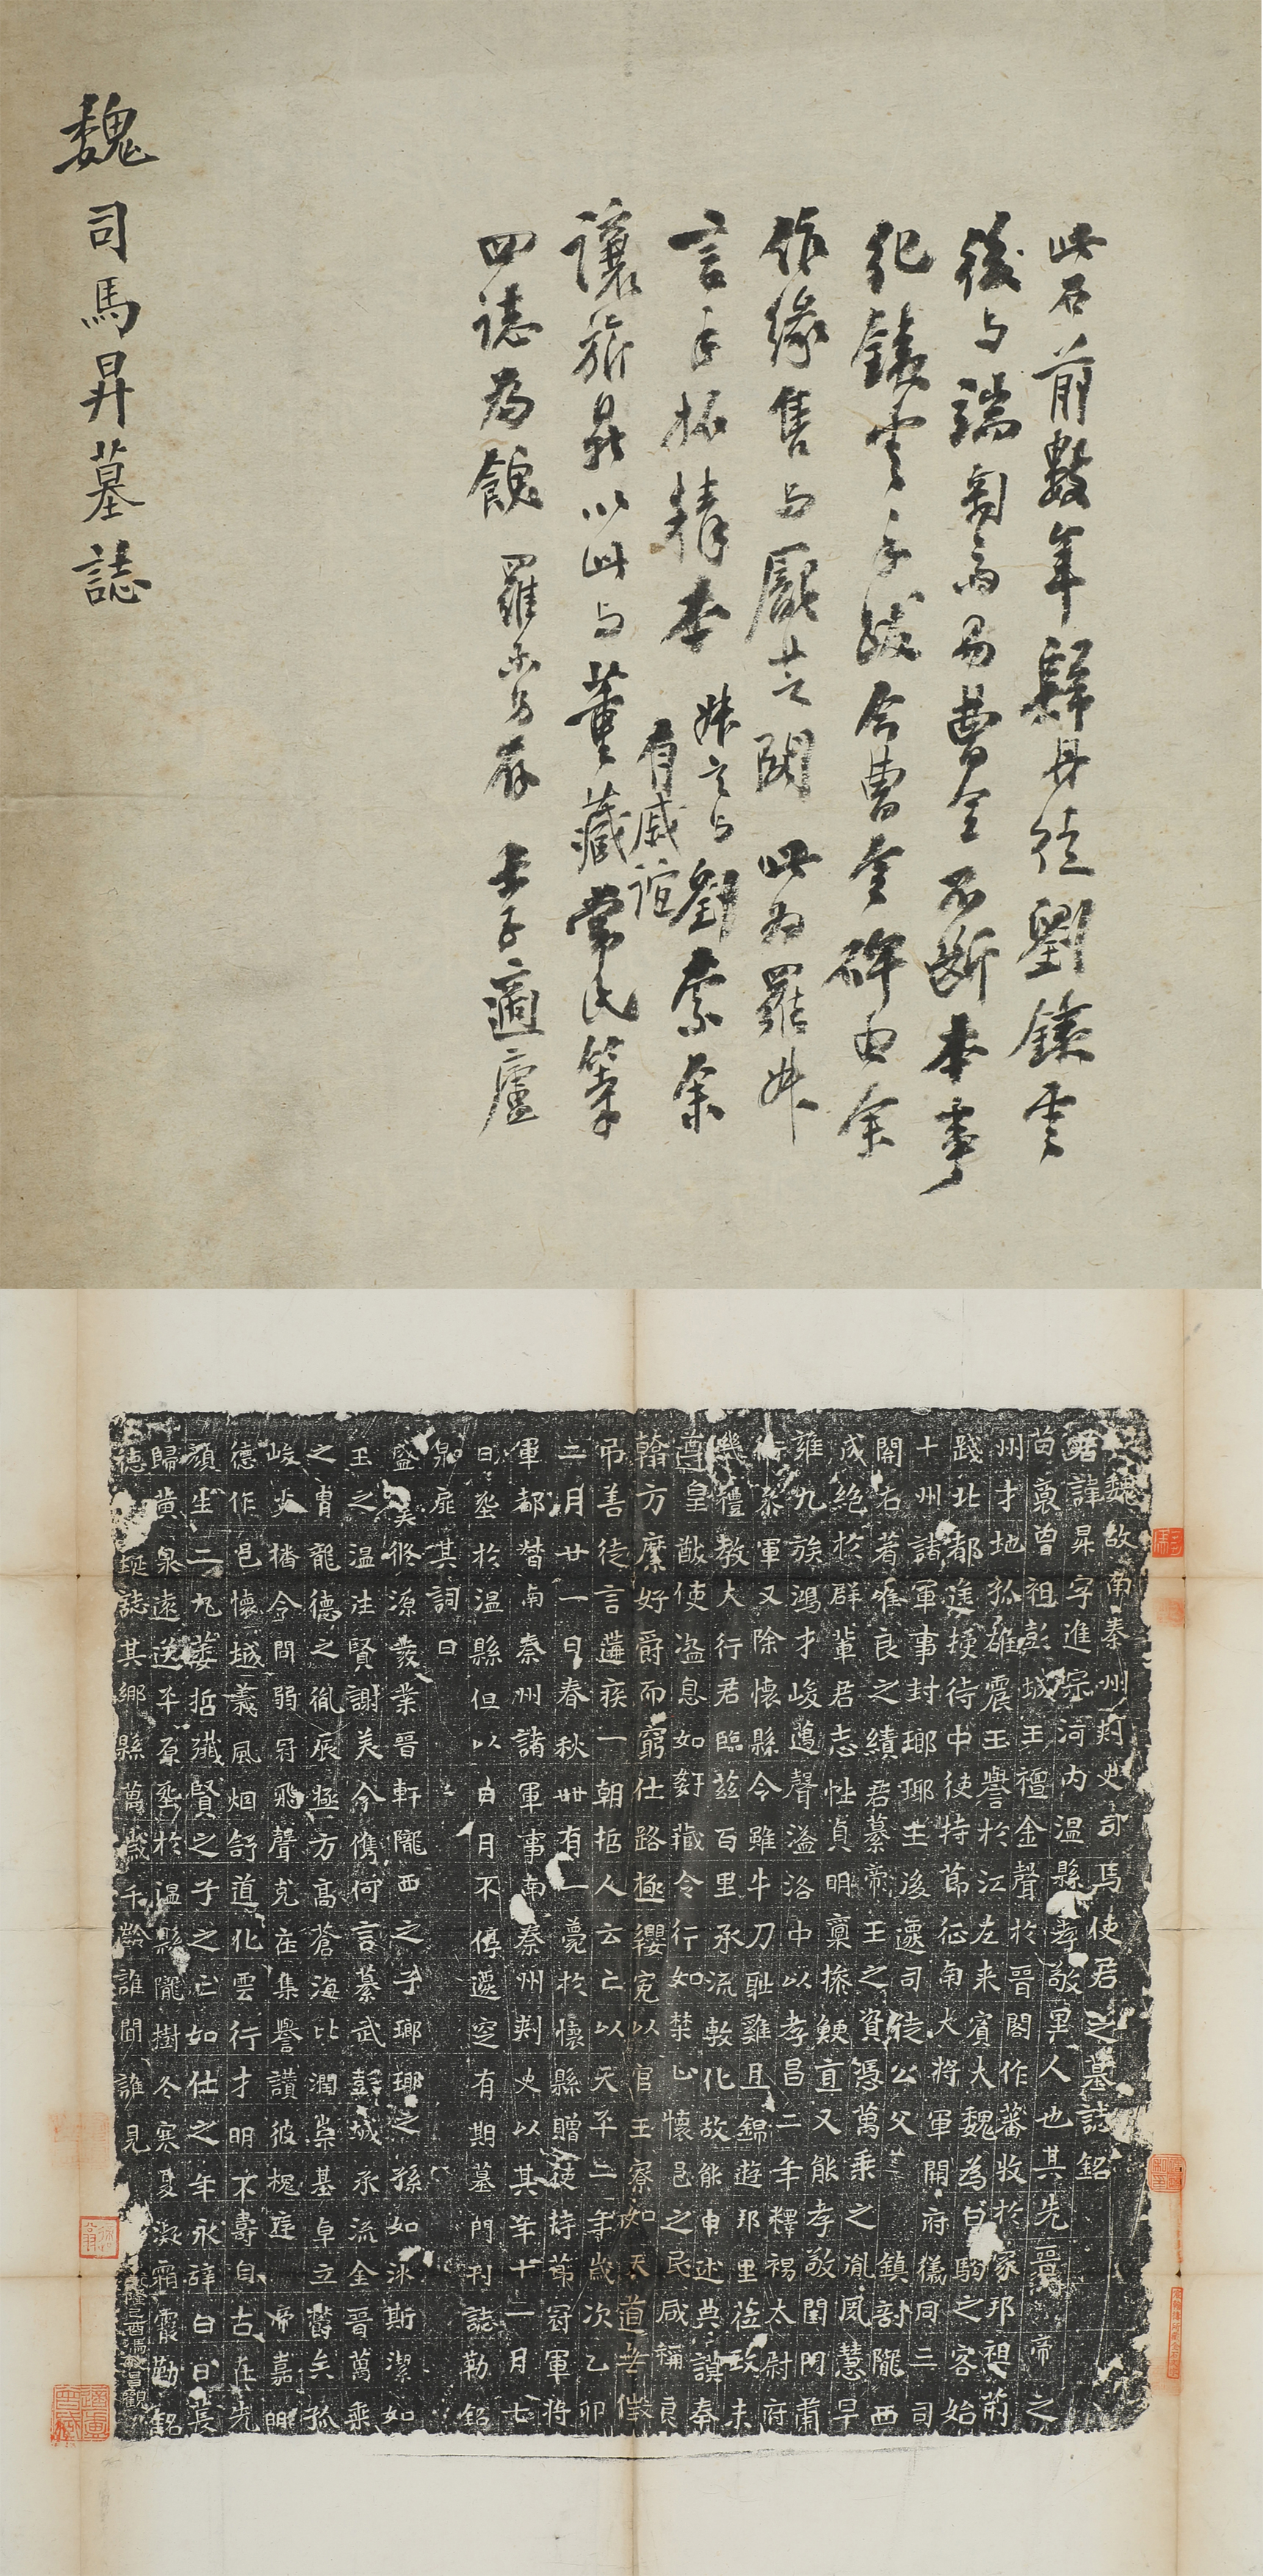 此石前數年歸丹徒劉鐵雲
後与端匋齋易曹全不斷本事
犯鐵雲手跋今曹全碑由余
作緣售与龐芝閣此為羅妹
言手拓精本妹言与劉素余
有戚誼
讓旅最以此与董藏常氏等
四誌為餽 羅振玉存 士子適廬
魏司馬昇墓誌
魏故南秦州刺史司馬使君之墓誌銘
君諱昇字進宗河内温縣孝敬里人也其先晉帝之
苗裔曾祖彭城王禮金聲於晉閣作蕃牧於家邦祖荊
州才地孤雄震玉譽於江左来賓大魏為白駒之客始
踐北都進授侍中使持節征南大將軍開府儀同三司
十州諸軍事封瑯瑘王後遷司徒公父鎮剖隴西
開右著唯良之績君纂帝王之資憑萬乘之胤夙慧早
成絶於群輩君志性貞明禀操鯁直又能孝敬閨門肅
雍九族鴻才峻邁聲溢洛中以孝昌二年釋褐太尉府
行參軍又除懷縣令雖牛刀耻雞且錦遊邦里莅政未
幾禮教大行君臨兹百里承流敷化故能申述典謨奉
遵皇猷使盗息如䊵藏令行如禁止懷邑之民咸稱良
翰方縻好爵而窮仕路極纓冕以官王寮如天道無徵
吊善徒言遘疾一朝招人云亡以天平二年歲次乙卯
二月廿一日春秋卌有一薨於懷縣贈使持節冠軍將
軍都督南秦州諸軍事南秦州刺史以其年十一月七
日塟於温縣但以白月不停遷窆有期墓門刊誌勒銘
泉扉其詞曰
盛矣脩源峩業晉軒隴西之子瑯瑘之孫如冰斯潔如
玉之温注賢謝美今儁何言纂武彭城承流金晉萬乘
之胄龍德之胤辰極方高蒼海比潤崇基卓立舊矣孤
峻火橋令問弱冠飛聲克在集譽讚彼槐庭帝嘉明
德作邑懷城義風烟舒道化雲行才明不壽自古在先
顔生二九萎哲殲賢之子之亡如仕之年永辞白日長
歸黄泉遠送平原塟於温縣隴樹冬寒夏凝霜霰勒銘
德埏誌其鄉縣萬歲千齡誰聞誰見